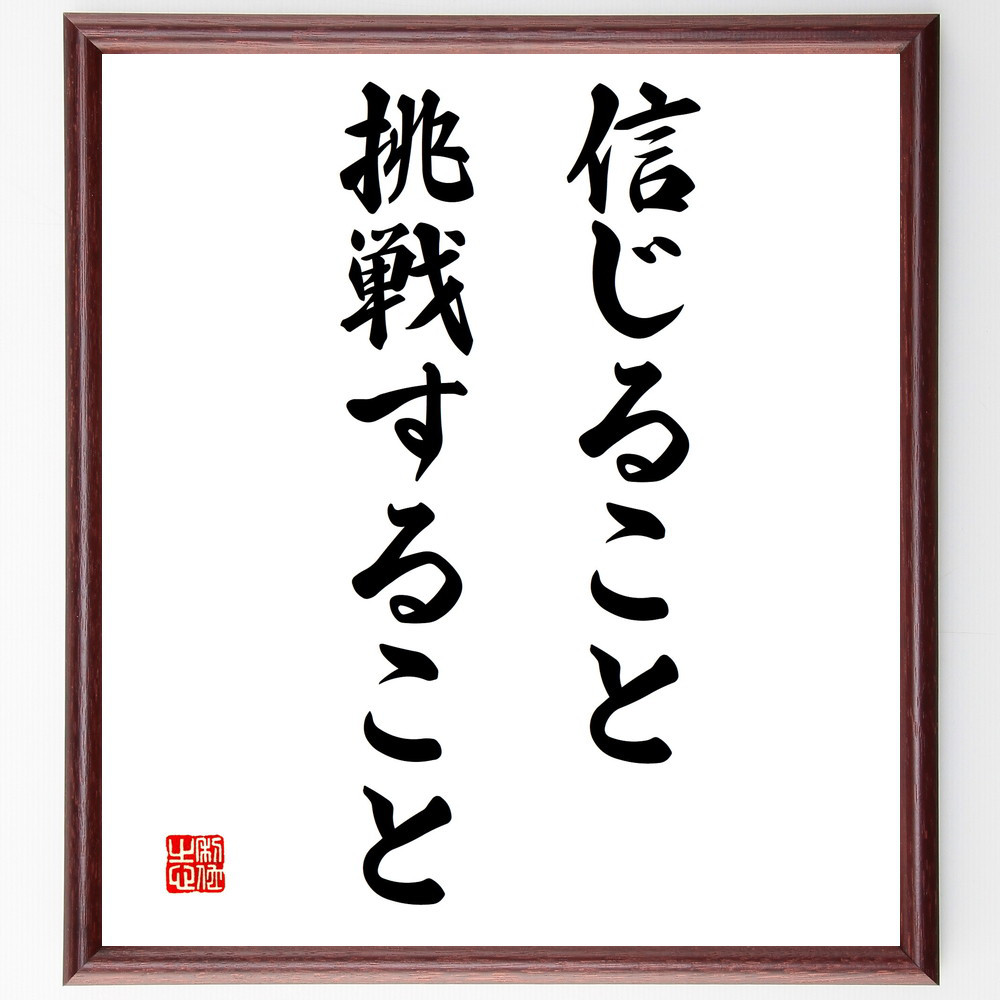 信じること
挑戦すること